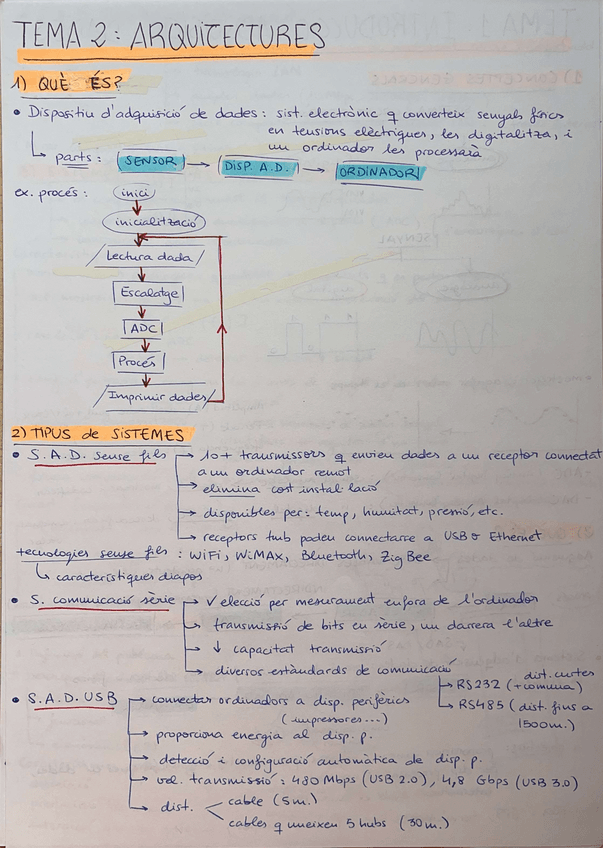 TEMA 2: ARQUITECTURES
1) QUÈ ÉS?
• Dispositiu d'adquisició de dades: sist. electrònic q converteix senyals físics
en tensions elèctriques, les digitalitza, i
un ordinador les processarà
parts: SENSOR → DISP. A.D. → ORDINADOR
ex. procés: inici
inicialització
Lectura dada
Escalatge
ADC
Procés
Imprimir dades
2) TIPUS de SISTEMES
• S.A.D. sense fils → 10+ transmissors q envien dades a un receptor connectat
a un ordinador remot
→ elimina cost instal·lació
→ disponibles per: temp, humitat, pressió, etc.
→ receptors tmb poden connectarse a USB o Ethernet
tecnologies sense fils: WiFi, WiMAX, Bluetooth, ZigBee
característiques diapos
• S. comunicació sèrie → √ elecció per mesurament enfora de l'ordinador
→ transmissió de bits en sèrie, un darrera l'altre
→ ↓ capacitat transmissió
→ diversos estàndards de comunicació
→ RS232 (dist. curtes + comuna)
→ RS485 (dist. fins a
1500m.)
• S.A.D. USB → connectar ordinadors a disp. perifèrics
(impressores...)
→ proporciona energia al disp. p.
→ detecció i configuració automàtica de disp. p.
→ vel. transmissió: 480 Mbps (USB 2.0), 4,8 Gbps (USB 3.0)
→ dist. < cable (5m.)
cables q uneixen 5 hubs (30m.)